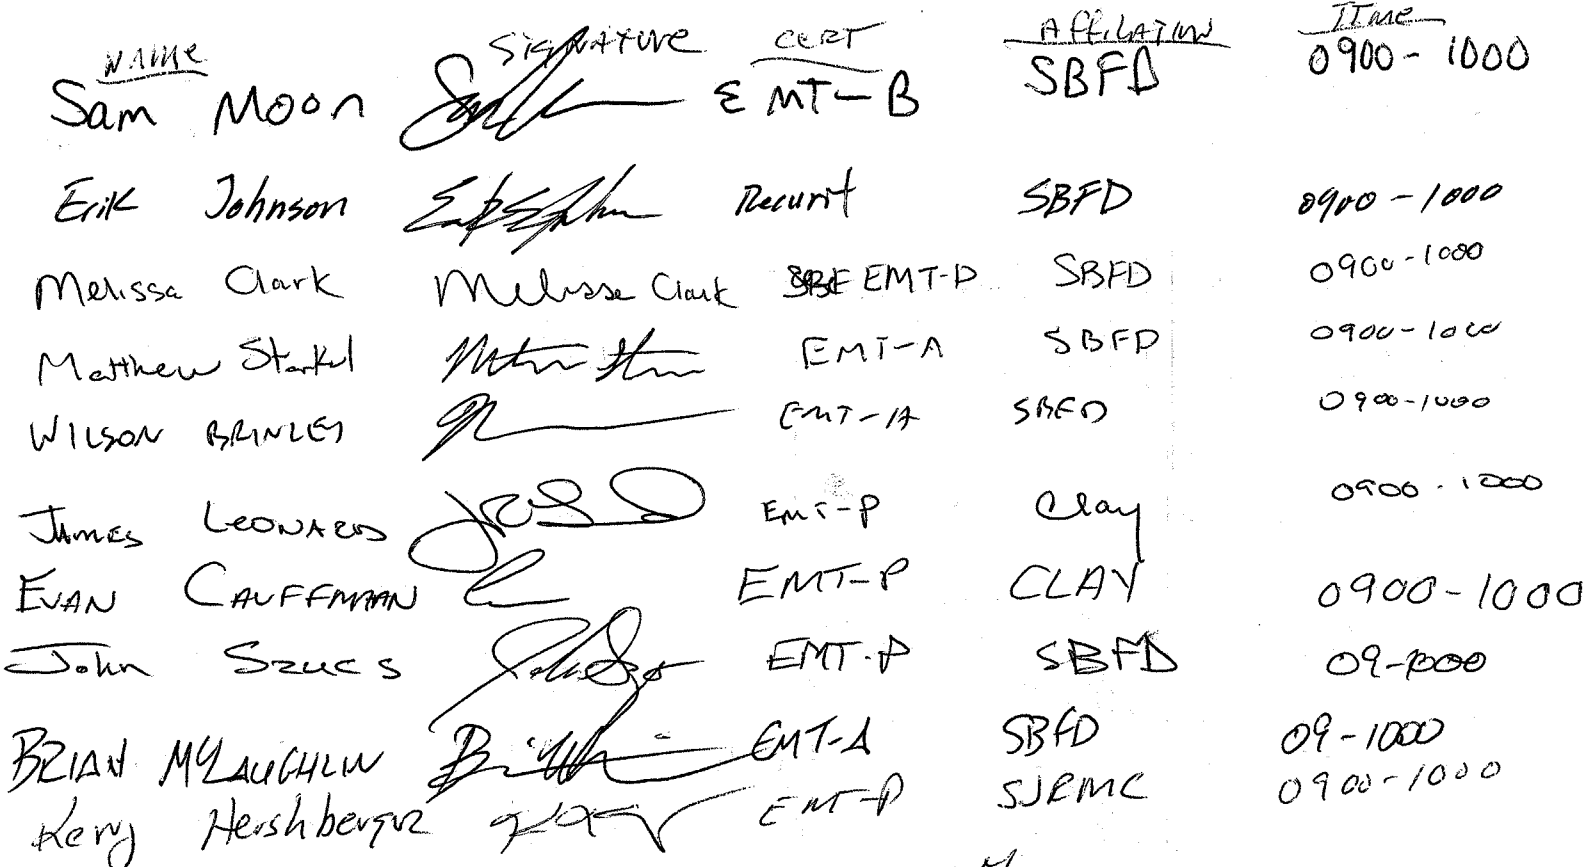 NAME SIGNATURE CERT AFFILATION TIME
Sam Moon EMT-B SBFD 0900-1000
Erik Johnson Recurit SBFD 0900-1000
Melissa Clark Melissa Clark EMT-P SBFD 0900-1000
Matthew EMT-A SBFD 0900-1000
WILSON BRINLEY EMT-A SBFD 0900-1000
JAMES LEONARD EMT-P Clay 0900-1000
EVAN CAUFFMAN EMT-P CLAY 0900-1000
John Szucs EMT-P SBFD 09-1000
BRIAN MCLAUGHLIN EMT-A SBFD 09-1000
Kerry Hershberger EMT-P SJRMC 0900-1000